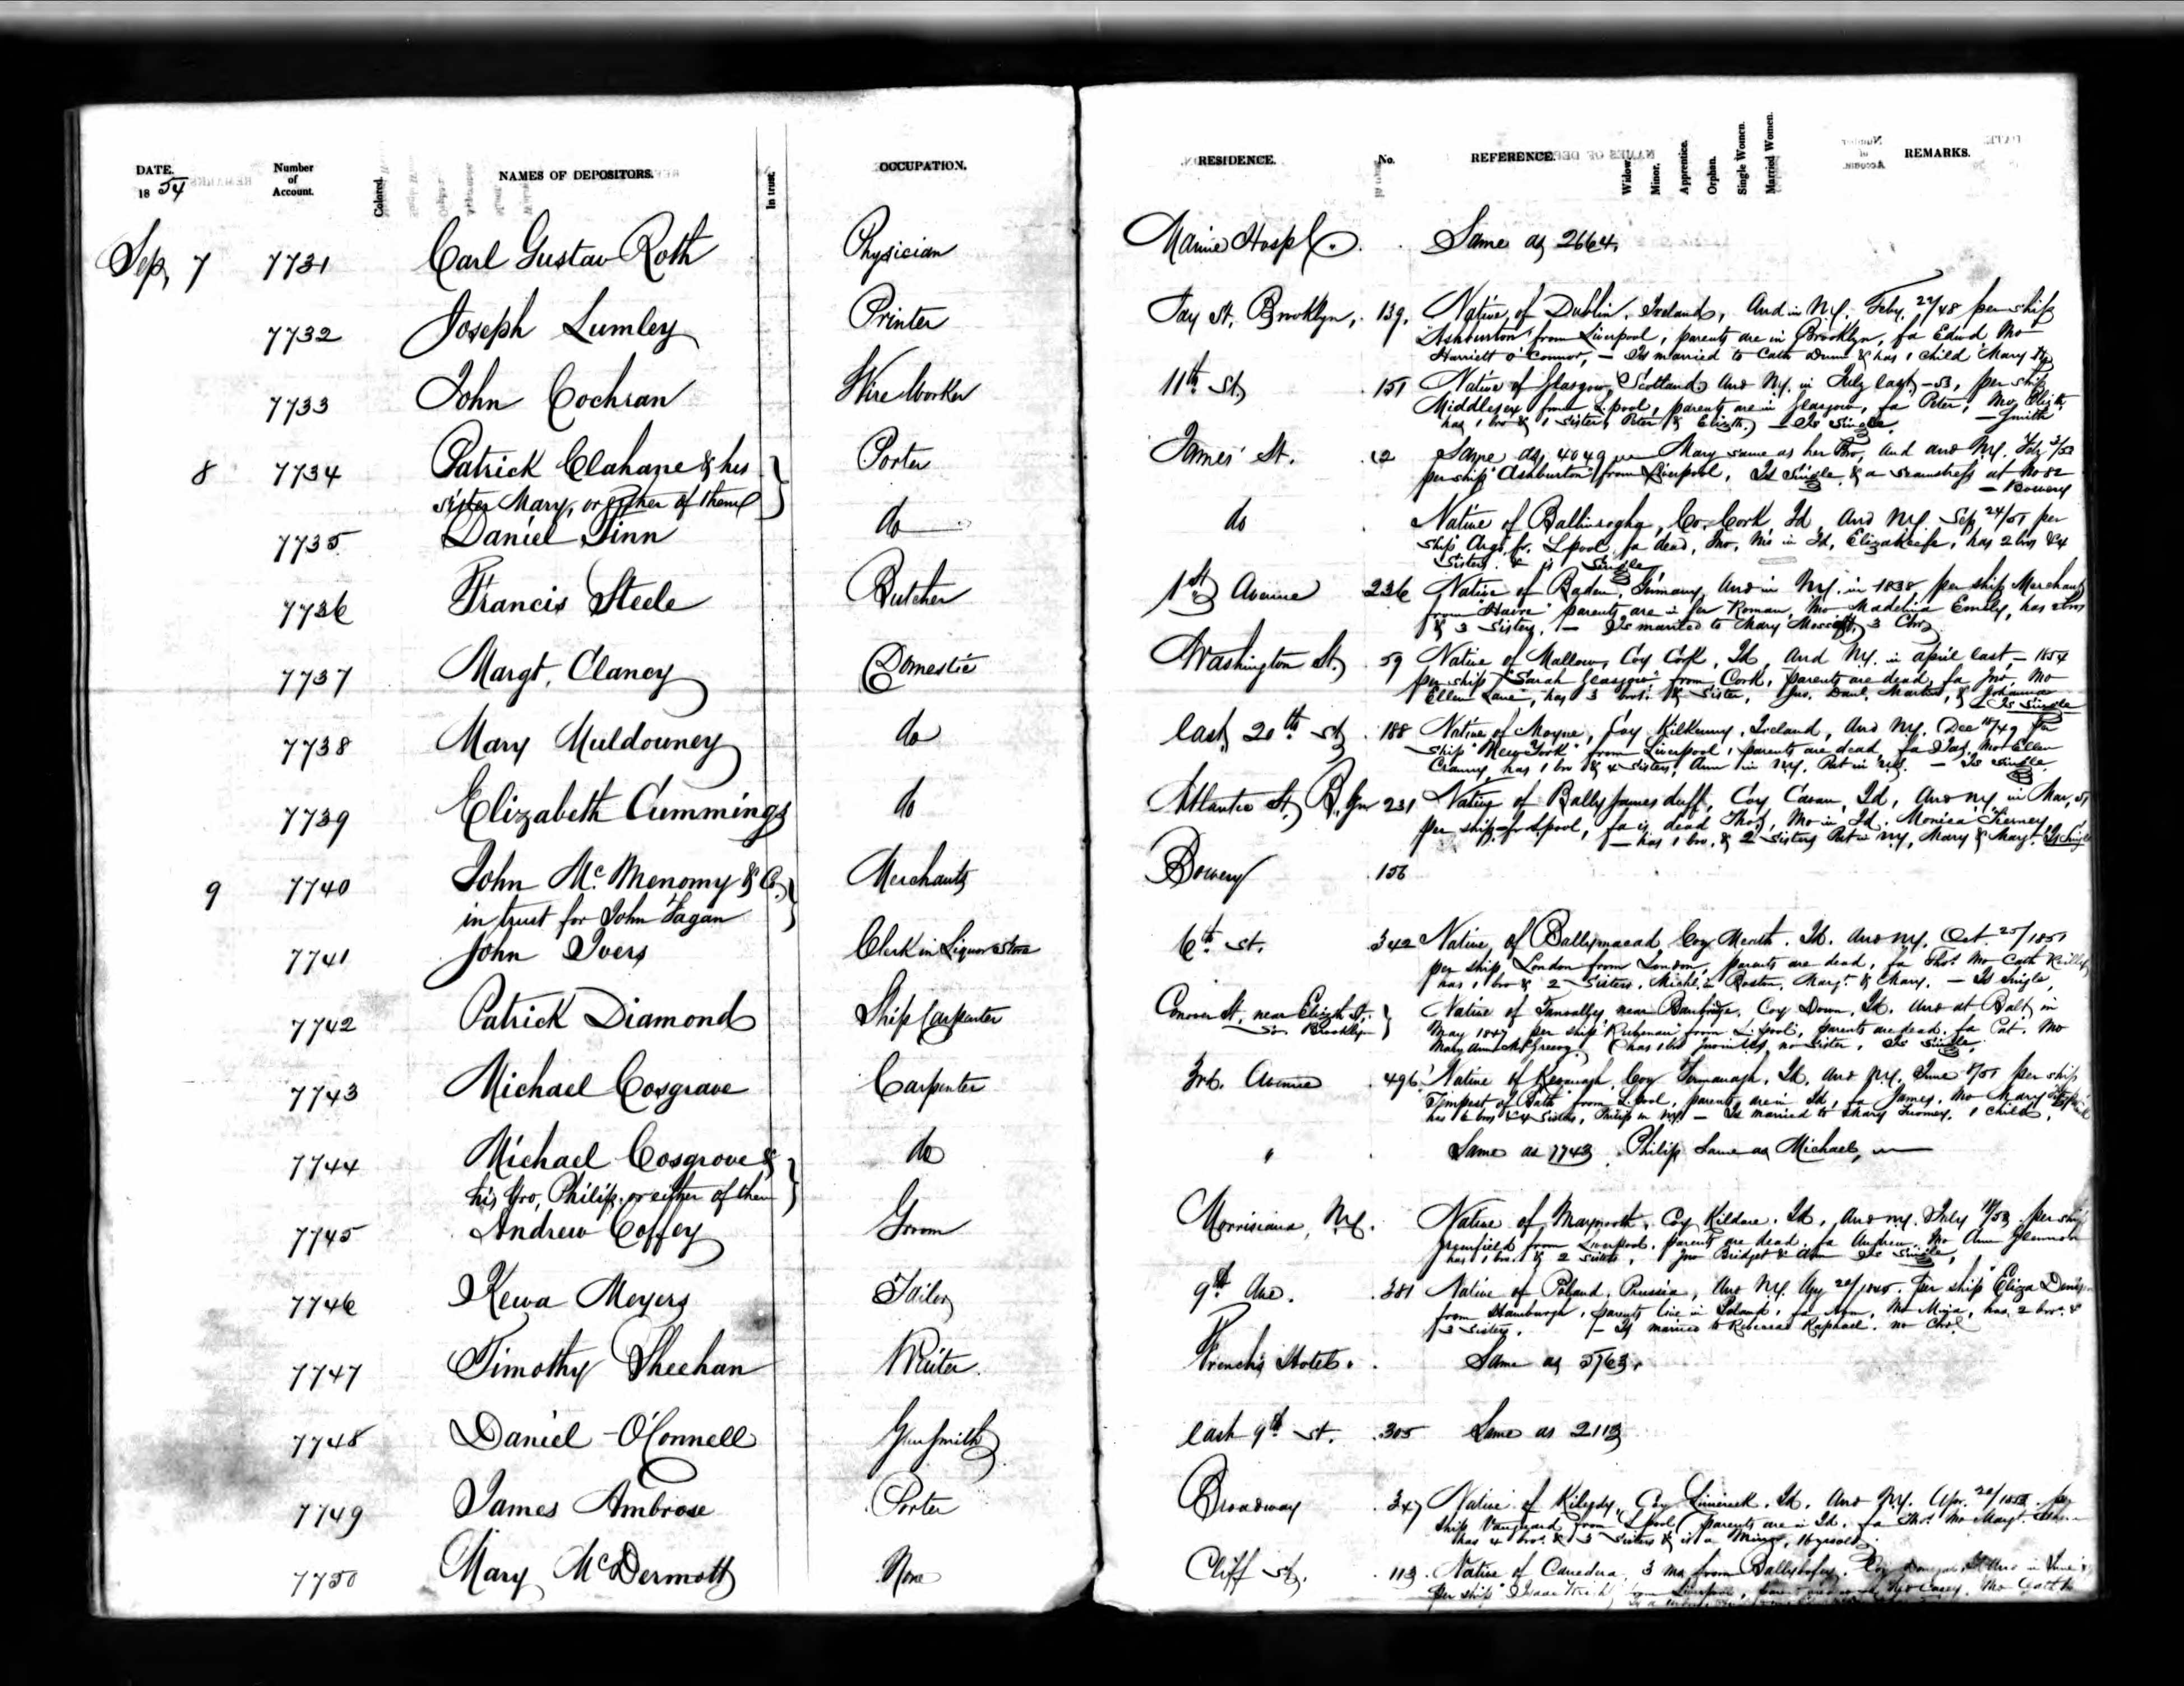 DATE. Number of Account. Colored. NAMES OF DEPOSITORS. In trust. OCCUPATION. RESIDENCE. No. REFERENCE. Widow. Minor. Apprentice. Orphan. Single Women. Married Women. REMARKS.
1854
Sep 7 7731 Carl Gustav Roth Physician Marine Hospl. Same as 2664.
7732 Joseph Lumley Printer Jay St. Brooklyn, 139, Native of Dublin, Ireland, Arrd in N.Y. Feby. 22/48 per ship
"Ashburton" from Liverpool, parents are in Brooklyn, fa Edwd Mo
Harriett O'Connor, — Is married to Cath Dunn & has 1 child Mary
7733 John Cochran Wire Worker 11th St. 151 Native of Glasgow, Scotland, Arrd N.Y. in July last, -53, per ship
Middlesex from L.pool, parents are in Glasgow, fa Peter, Mo Elizth.
— Smith
has 1 bro & 1 sister, Peter & Elizth. — Is Single.
8 7734 Patrick Clahane & his Porter James' St. 12 Same as 4049 Mary same as her Bro, and arrd N.Y.
sister Mary, or either of them per ship "Ashburton" from Liverpool, Is Single, & a seamstress at No 82
— Bowery
7735 Daniel Finn do do Native of , Co. Cork, Id, Arrd N.Y. Sep 24/51 per
ship Argo, fr. Lpool, fa dead, Jno, Mo in Id, Eliza Keefe, has 2 bros & 4
Sisters & is Single
7736 Francis Steele Butcher 1st Avenue 236 Native of Baden, Germany, Arrd in N.Y. in 1838, per ship Merchant
from "Havre" parents are in Ger Roman, Mo Madelina Emily, has 2 bros
& 3 Sisters. — Is married to Mary 3 Chn
7737 Margt. Clancy Domestic Washington St. 59 Native of Mallow, Coy Cork, Id, Arrd N.Y. in april last, — 1854
per ship "Sarah Glasgow" from Cork, parents are dead, fa Jno, Mo
Ellen Lane, has 3 bros. & Sister, Jno. Danl. Martin, & Johanna
— Is Single
7738 Mary Muldowney do East 20th St 188 Native of Moyne, Coy Kilkenny, Ireland, Arrd N.Y. Dec /49 per
ship "New York" from Liverpool, parents are dead, fa Jas, Mo Ellen
, has 1 bro & 4 Sisters, Ann in N.Y. Pat in N.Y. — Is Single
7739 Elizabeth Cummings do Atlantic St. B.lyn 231 Native of Ballyjamesduff, Coy Cavan, Id, Arrd N.Y. in Mar, 51
per ship fr Lpool, fa is dead Thos, Mo in Id. Monica Tierney
— has 1 bro. & 2 Sisters Pat in N.Y, Mary & Margt. Is Single
9 7740 John McMenomy & Co, Merchants Bowery 156
in trust for John Fagan
7741 John Ivers Clerk in Liquor Store 6th St. 342 Native of Ballymacad Coy Meath. Id. Arrd N.Y. Oct. 25/1851
per ship London from London, parents are dead, fa Thos. Mo Cath Reilly
has 1 bro & 2 Sisters. Michl. in Boston, Margt. & Mary. — Is Single,
7742 Patrick Diamond Ship Carpenter Conover St, near Elizth St, Native of , near Banbridge, Coy Down, Id. Arrd at Balt. in
So. Brooklyn May 1847 per ship from L.pool, parents are dead, fa Pat. Mo
Mary Ann McGreevy. has 1 bro , no sister, Is Single,
7743 Michael Cosgrave Carpenter 3rd. Avenue 496 Native of , Coy Fermanagh, Id, Arrd N.Y. June /51 per ship
from L.pool, parents are in Id, fa James, Mo Mary
has 6 bros & 4 Sisters, Philip in N.Y. — Is married to Mary Twomey. 1 child.
7744 Michael Cosgrove & do " Same as 7743. Philip Same as Michael,
his bro, Philip, or either of them
7745 Andrew Coffey Groom Morrisiana, N.Y. Native of Maynooth, Coy Kildare, Id, Arrd N.Y. July 18/53 per ship
Greenfield from Liverpool, parents are dead, fa Andrew, Mo Ann Glennon
has 1 bro. & 2 sisters, Jno Bridget & Ann Is Single,
7746 Kewa Meyers Tailor 9th Ave. 381 Native of Poland, Prussia, Arrd N.Y. 1845. per ship Eliza
from Hamburgh, parents live in Poland, fa Abm, Mo Mina, has 2 bros. &
3 Sisters. — Is married to Rebecca Raphael. no Chn
7747 Timothy Sheehan Waiter. French's Hotel. Same as 5763.
7748 Daniel O'Connell Gun Smith East 9th St. 305 Same as 2113
7749 James Ambrose Porter Broadway 347 Native of Kiledy, Coy Limerick, Id. Arrd N.Y. Apr. per
ship Vanguard from Lpool, parents are in Id, fa Thos. Mo Margt.
has 4 bros. & 3 Sisters & is a Minor, 16 yrs old.
7750 Mary McDermott None Cliff St. 113 Native of , 3 ms from Ballybofey, Coy Donegal Id Arrd in June
per ship "Isaac Wright" from Liverpool, Casey. Mo Cath